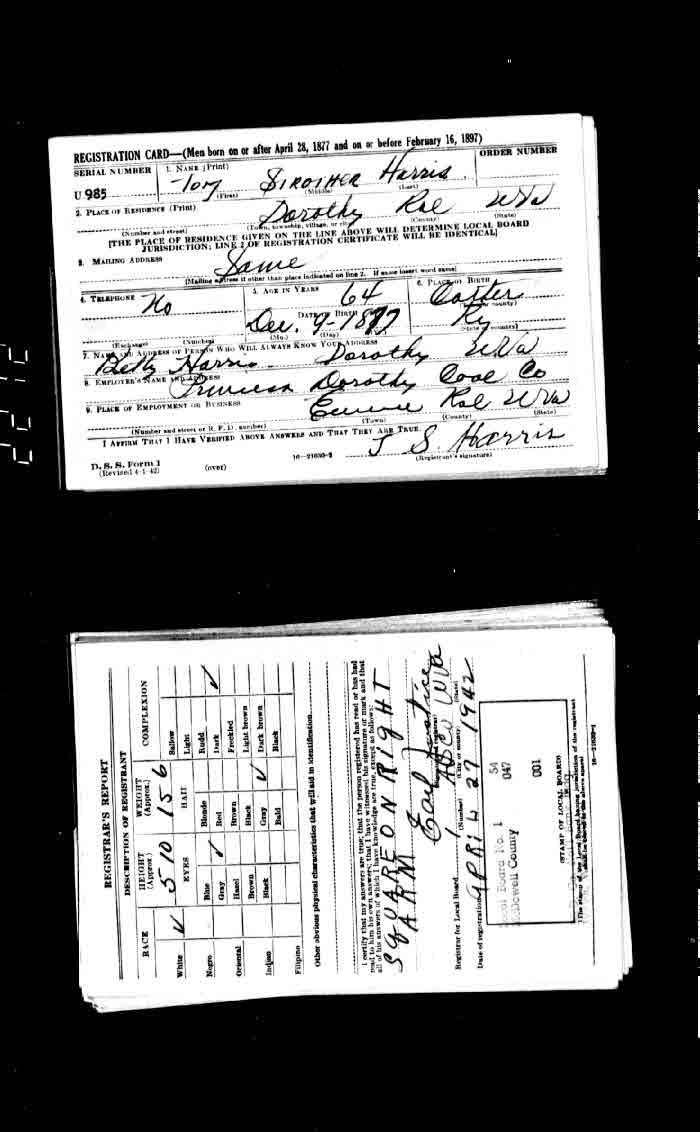 REGISTRATION CARD—(Men born on or after April 28, 1877 and on or before February 16, 1897)
SERIAL NUMBER 1. NAME (Print) ORDER NUMBER
U 985 Tom Strother Harris
(First) (Middle) (Last)
2. PLACE OF RESIDENCE (Print)
Dorothy Ral WVa
(Number and street) (Town, township, village, or city) (County) (State)
[THE PLACE OF RESIDENCE GIVEN ON THE LINE ABOVE WILL DETERMINE LOCAL BOARD
JURISDICTION; LINE 2 OF REGISTRATION CERTIFICATE WILL BE IDENTICAL]
3. MAILING ADDRESS
Same
[Mailing address if other than place indicated on line 2. If same insert word same]
4. TELEPHONE 5. AGE IN YEARS 6. PLACE OF BIRTH
No 64 Carter
DATE OF BIRTH (Town or county)
Dec. 9-1877 Ky
(Exchange) (Number) (Mo.) (Day) (State or country)
7. NAME AND ADDRESS OF PERSON WHO WILL ALWAYS KNOW YOUR ADDRESS
Betty Harris Dorothy WVa
8. EMPLOYER'S NAME AND ADDRESS
Princess Dorothy Coal Co
9. PLACE OF EMPLOYMENT OR BUSINESS
Eunice Ral WVa
(Number and street or R. F. D. number) (Town) (County) (State)
I AFFIRM THAT I HAVE VERIFIED ABOVE ANSWERS AND THAT THEY ARE TRUE.
T S. Harris
D. S. S. Form 1 16—21630-2 (Registrant's signature)
(Revised 4-1-42) (over)
REGISTRAR'S REPORT
DESCRIPTION OF REGISTRANT
RACE HEIGHT (Approx.) WEIGHT (Approx.) COMPLEXION
5-10 156
White EYES HAIR Sallow
Light
Negro Blue Blonde Ruddy
Gray Red Dark
Oriental Hazel Brown Freckled
Brown Black Light brown
Indian Black Gray Dark brown
Bald Black
Filipino
Other obvious physical characteristics that will aid in identification
I certify that my answers are true; that the person registered has read or has had
read to him his own answers; that I have witnessed his signature or mark and that
all of his answers of which I have knowledge are true, except as follows:
SQUARE ON RIGHT
ARM
Earl Justice
Registrar for Local Board WVa
(Number) (City or county) (State)
Date of registration APRIL 27 1942
Local Board No. 1 54
McDowell County 047
001
(STAMP OF LOCAL BOARD)
(The stamp of the Local Board having jurisdiction of the registrant
shall be placed in the above space)
16—21630-1